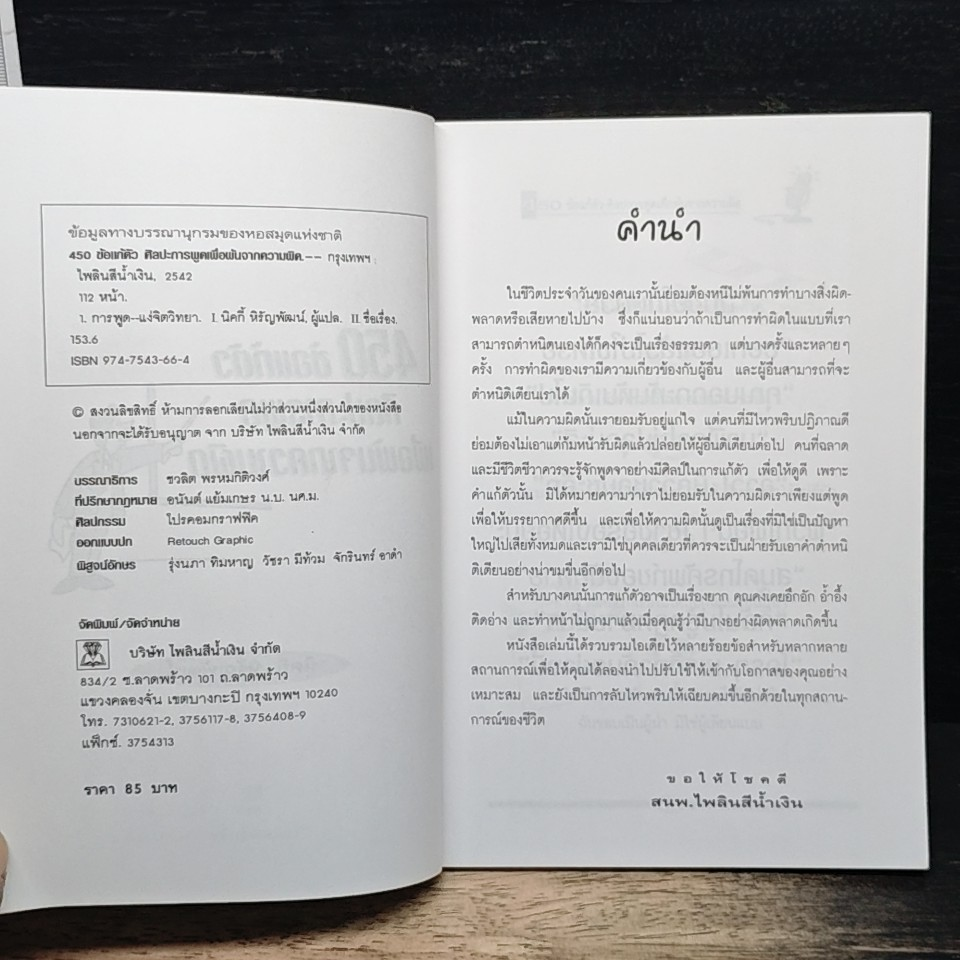 ข้อมูลทางบรรณานุกรมของหอสมุดแห่งชาติ
450 ข้อแก้ตัว ศิลปะการพูดเพื่อพ้นจากความผิด.-- กรุงเทพฯ :
ไพลินสีน้ำเงิน, 2542
112 หน้า.
1. การพูด--แง่จิตวิทยา. I. นิคกี้ หิรัญพัฒน์, ผู้แปล. II. ชื่อเรื่อง.
153.6
ISBN 974-7543-66-4
© สงวนลิขสิทธิ์ ห้ามการลอกเลียนไม่ว่าส่วนหนึ่งส่วนใดของหนังสือ
นอกจากจะได้รับอนุญาต จาก บริษัท ไพลินสีน้ำเงิน จำกัด
บรรณาธิการ ชวลิต พรหมกิติวงศ์
ที่ปรึกษากฎหมาย อนันต์ แย้มเกษร น.บ. นศ.ม.
ศิลปกรรม โปรคอมกราฟฟิค
ออกแบบปก Retouch Graphic
พิสูจน์อักษร รุ่งนภา ทิมหาญ วัชรา มีท้วม จักรินทร์ อาดำ
จัดพิมพ์/จัดจำหน่าย
บริษัท ไพลินสีน้ำเงิน จำกัด
834/2 ซ.ลาดพร้าว 101 ถ.ลาดพร้าว
แขวงคลองจั่น เขตบางกะปิ กรุงเทพฯ 10240
โทร. 7310621-2, 3756117-8, 3756408-9
แฟ็กซ์. 3754313
ราคา 85 บาท
คำนำ
ในชีวิตประจำวันของคนเรานั้นย่อมต้องหนีไม่พ้นการทำบางสิ่งผิด-
พลาดหรือเสียหายไปบ้าง ซึ่งก็แน่นอนว่าถ้าเป็นการทำผิดในแบบที่เรา
สามารถตำหนิตนเองได้ก็คงจะเป็นเรื่องธรรมดา แต่บางครั้งและหลายๆ
ครั้ง การทำผิดของเรามีความเกี่ยวข้องกับผู้อื่น และผู้อื่นสามารถที่จะ
ตำหนิติเตียนเราได้
แม้ในความผิดนั้นเรายอมรับอยู่แก่ใจ แต่คนที่มีไหวพริบปฏิภาณดี
ย่อมต้องไม่เอาแต่ก้มหน้ารับผิดแล้วปล่อยให้ผู้อื่นติเตียนต่อไป คนที่ฉลาด
และมีชีวิตชีวาควรจะรู้จักพูดจาอย่างมีศิลป์ในการแก้ตัว เพื่อให้ดูดี เพราะ
คำแก้ตัวนั้น มิได้หมายความว่าเราไม่ยอมรับในความผิดเราเพียงแต่พูด
เพื่อให้บรรยากาศดีขึ้น และเพื่อให้ความผิดนั้นดูเป็นเรื่องที่มิใช่เป็นปัญหา
ใหญ่ไปเสียทั้งหมดและเรามิใช่บุคคลเดียวที่ควรจะเป็นฝ่ายรับเอาคำตำหนิ
ติเตียนอย่างน่าขมขื่นอีกต่อไป
สำหรับบางคนนั้นการแก้ตัวอาจเป็นเรื่องยาก คุณคงเคยอึกอัก อ้ำอึ้ง
ติดอ่าง และทำหน้าไม่ถูกมาแล้วเมื่อคุณรู้ว่ามีบางอย่างผิดพลาดเกิดขึ้น
หนังสือเล่มนี้ได้รวบรวมไอเดียไว้หลายร้อยข้อสำหรับหลากหลาย
สถานการณ์เพื่อให้คุณได้ลองนำไปปรับใช้ให้เข้ากับโอกาสของคุณอย่าง
เหมาะสม และยังเป็นการลับไหวพริบให้เฉียบคมขึ้นอีกด้วยในทุกสถาน-
การณ์ของชีวิต
ขอให้โชคดี
สนพ.ไพลินสีน้ำเงิน